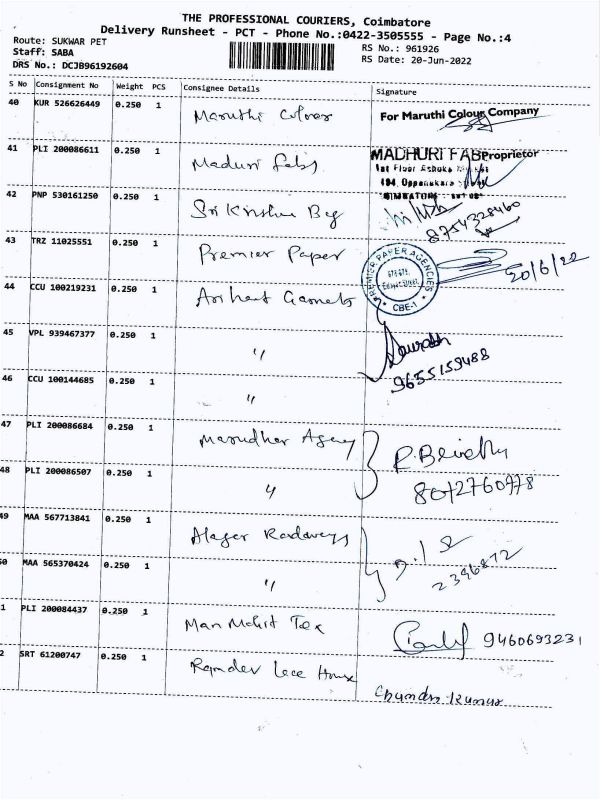 THE PROFESSIONAL COURIERS, Coimbatore
Delivery Runsheet - PCT - Phone No.:0422-3505555 - Page No.:4
Route: SUKWAR PET
Staff: SABA
DRS No.: DCJB96192604
RS No.: 961926
RS Date: 20-Jun-2022
S No Consignment No Weight PCS Consignee Details Signature
40 KUR 526626449 0.250 1 Maruthi Colors
For Maruthi Colour Company
41 PLI 200086611 0.250 1 Maduri Fabs
MADHURI FAB Proprietor
1st Floor Ashoka
494, Oppanakara
42 PNP 530161250 0.250 1 Sri Krishna Bag
8754328460
43 TRZ 11025551 0.250 1 Premier Paper
PREMIER PAPER AGENCIES
CBE-1
20/6/22
44 CCU 100219231 0.250 1 Arihant Garments
45 VPL 939467377 0.250 1 "
Saurabh
9655159488
46 CCU 100144685 0.250 1 "
47 PLI 200086684 0.250 1 Marudhar Agency
48 PLI 200086507 0.250 1 "
8072760778
49 MAA 567713841 0.250 1 Alager Roadways
50 MAA 565370424 0.250 1 "
2396872
1 PLI 200084437 0.250 1 Man Mohit Tex
9460693231
2 SRT 61200747 0.250 1 Ramdev Lace House
Chundra Kumar